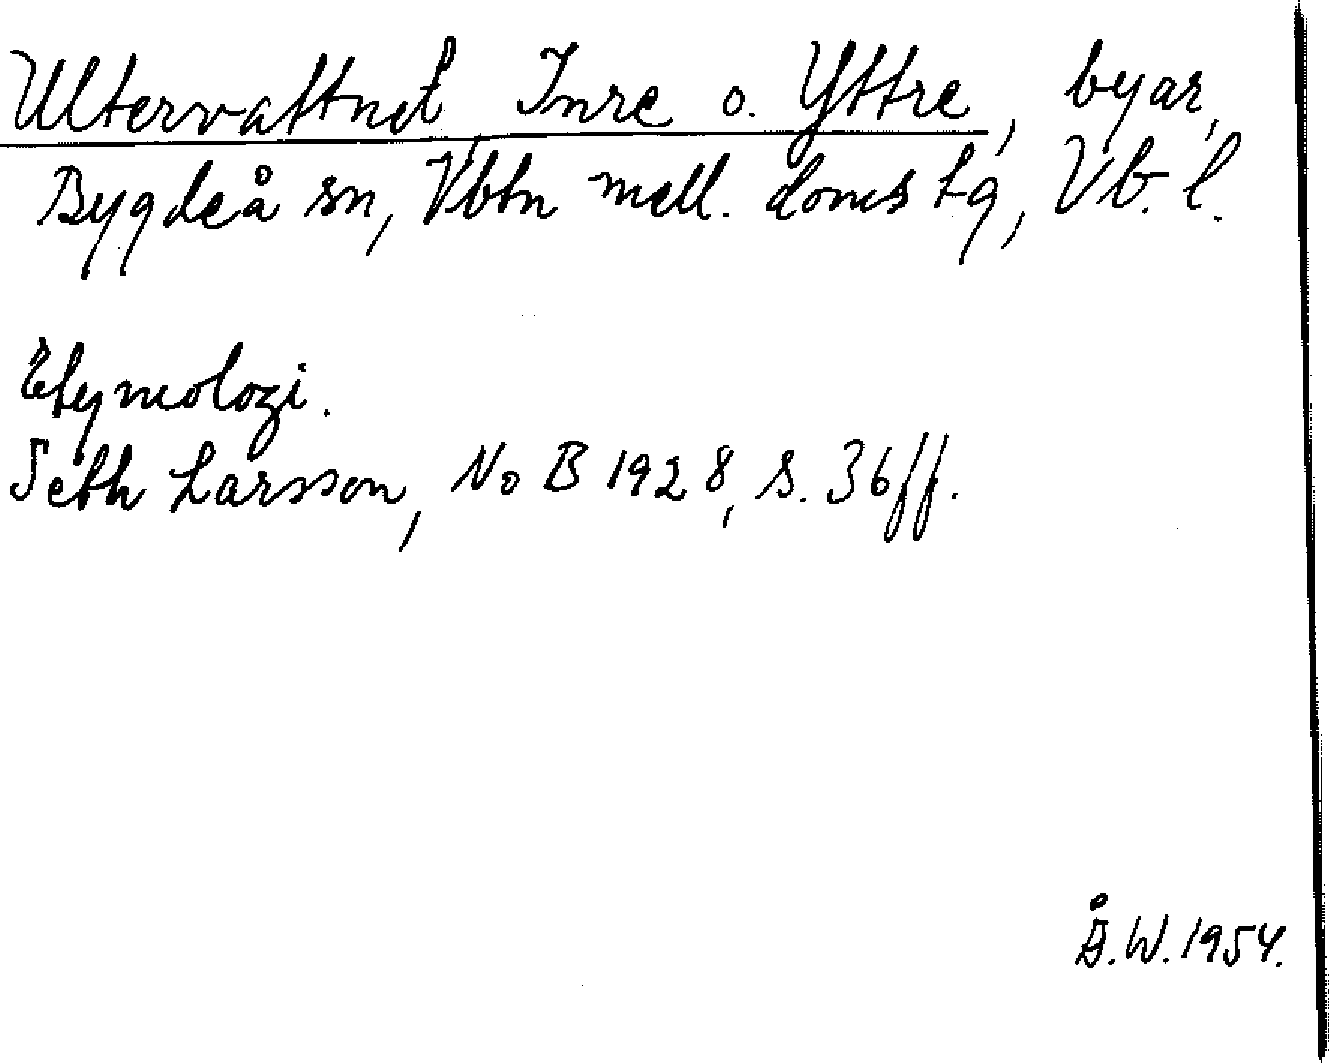 Ultervattnet Inre o. Yttre, byar,
Bygdeå sn, Vbtn mell. doms tg, Vb. l.
Etymologi.
Seth Larsson, No B 1928, s. 36ff.
Å.W. 1954.